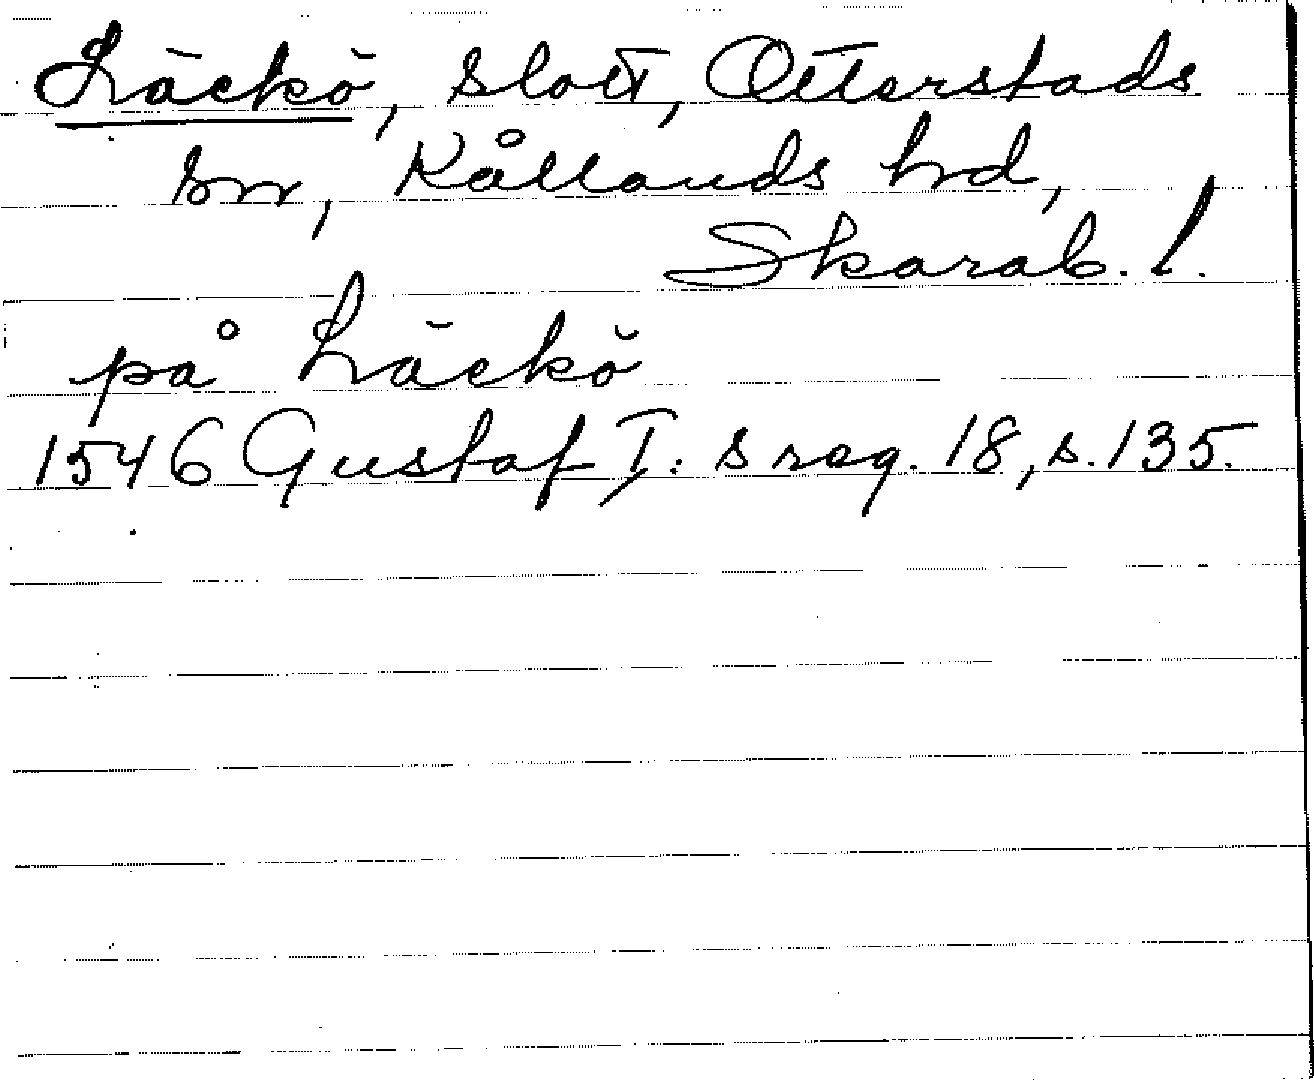 Läckö, slott, Otterstads
sn, Kållands hd,
Skarab. l.
på Läckö
1546 Gustaf I:s reg. 18, s. 135.